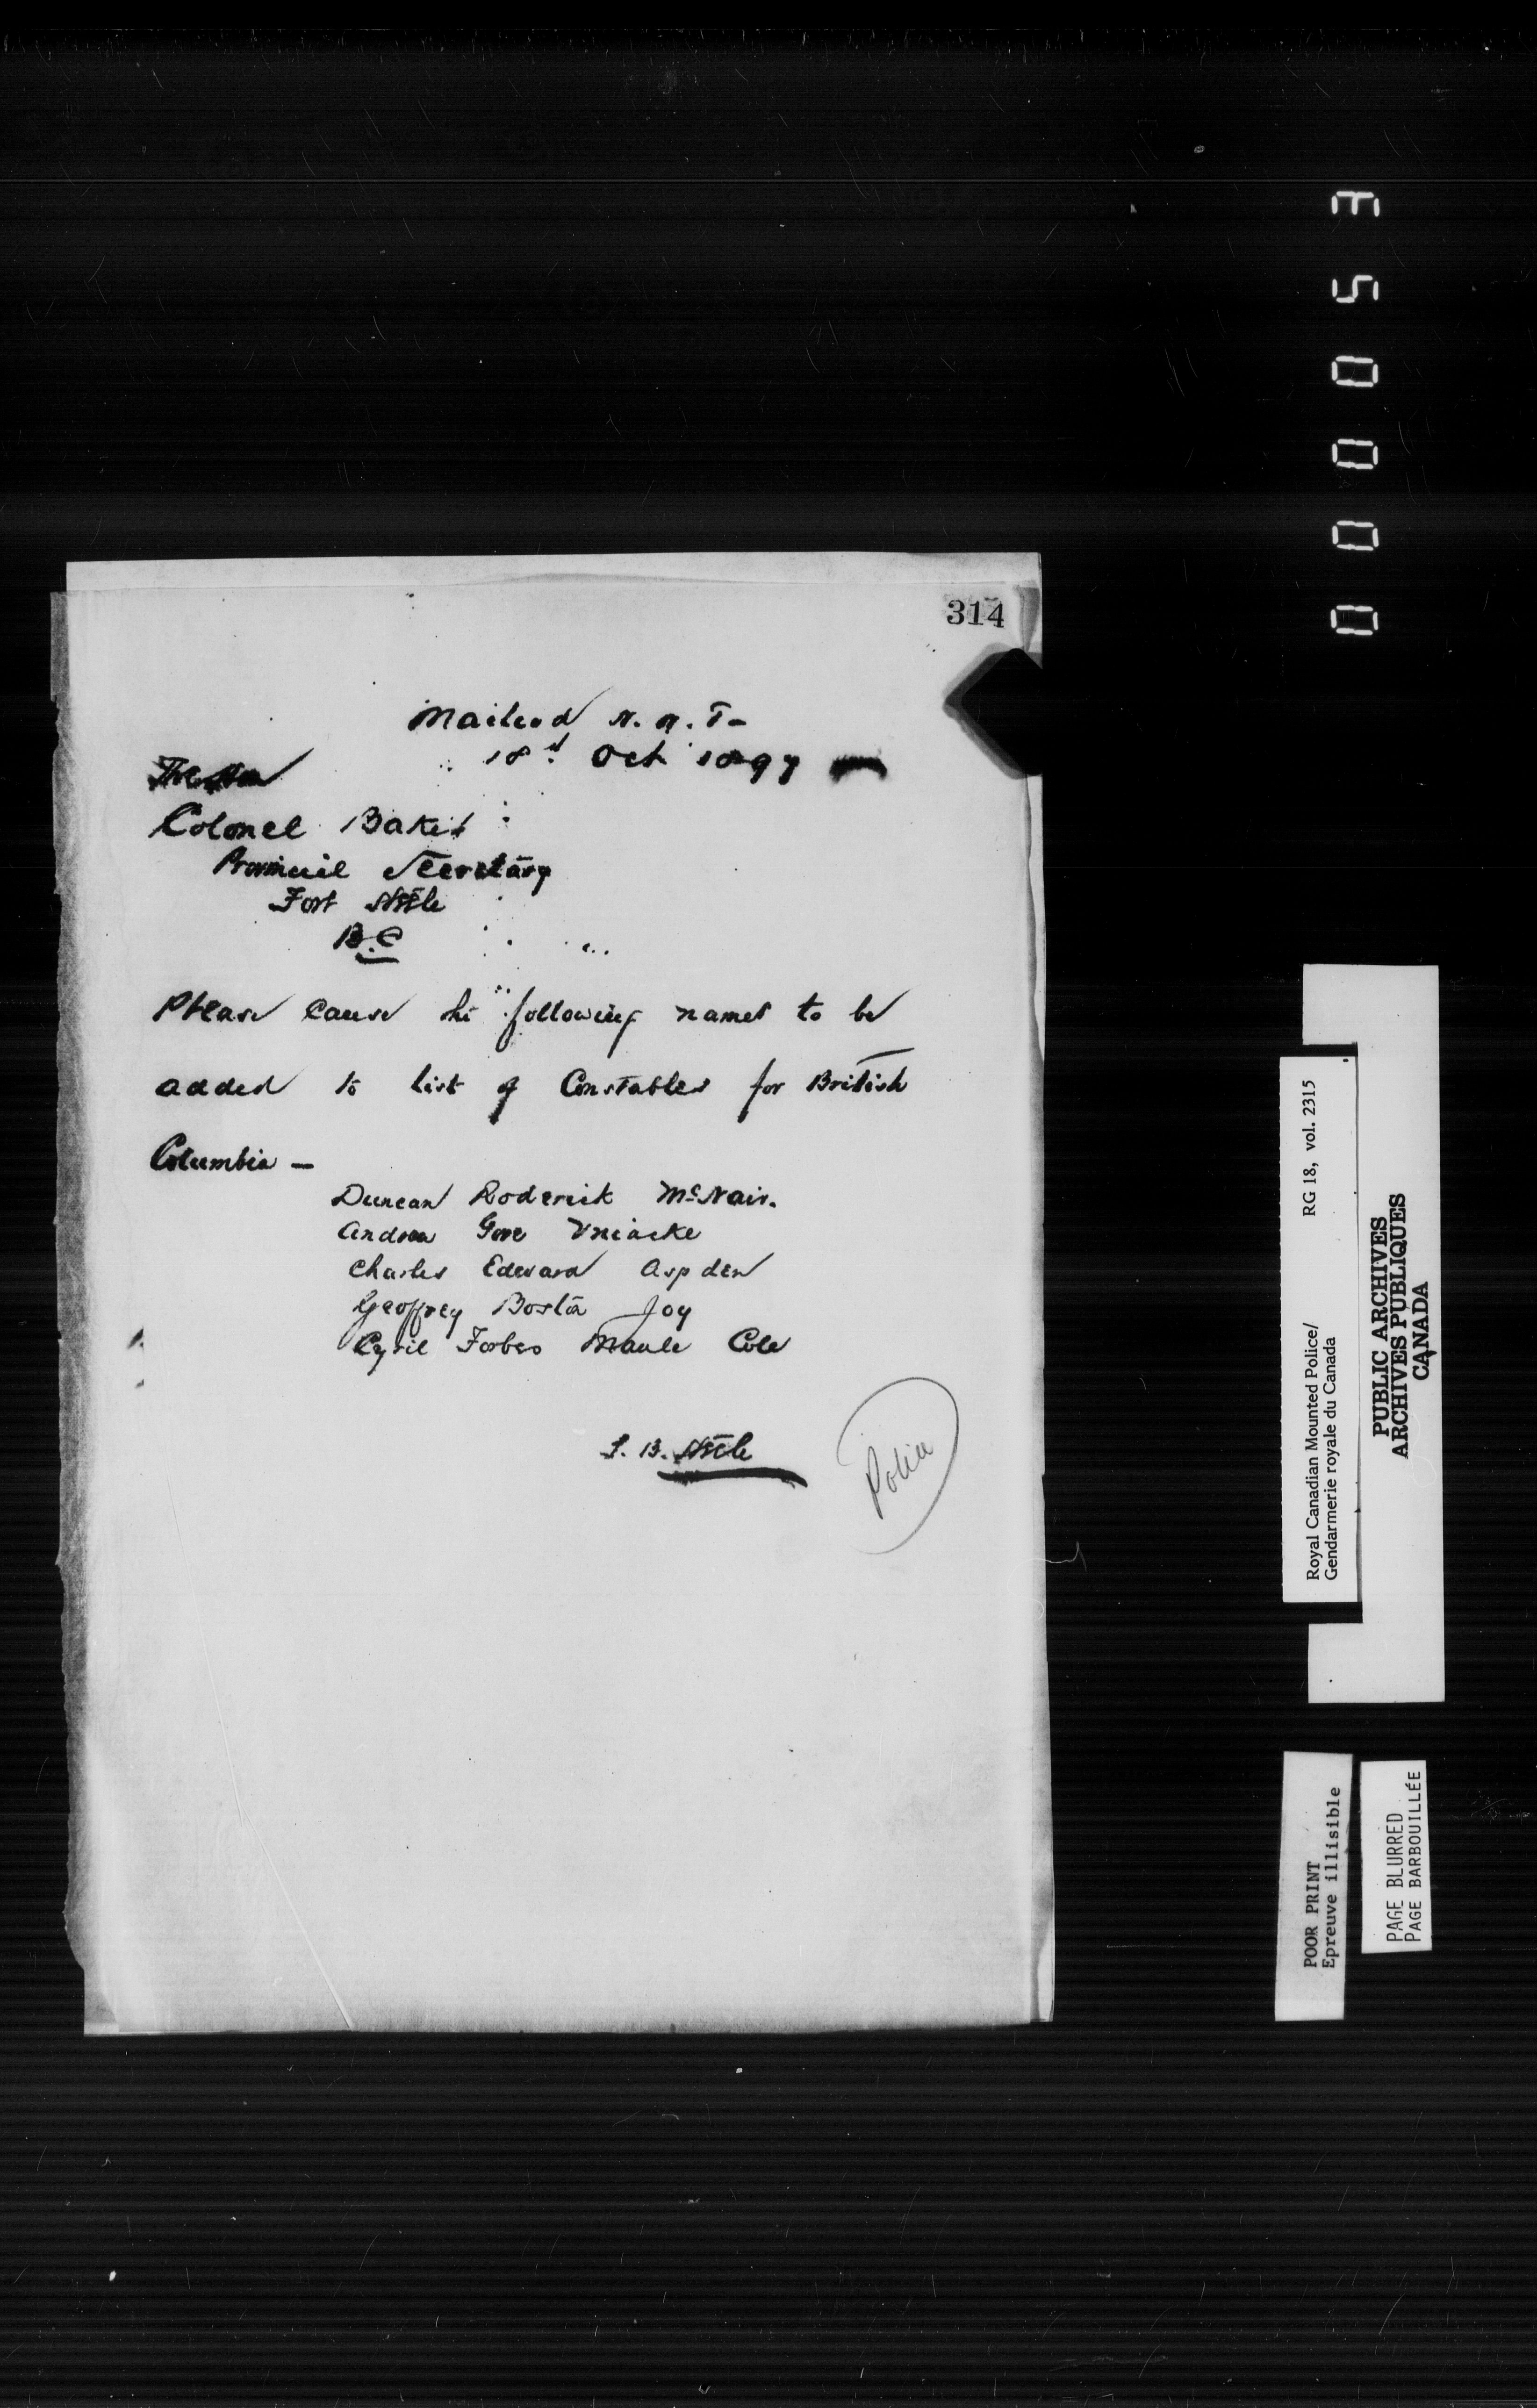 314
Macleod N.W.T-
18th Oct 1897
Colonel Baker
Provincial Secretary
Fort Steele
B.C
Please cause the following names to be
added to list of Constables for British
Columbia -
Duncan Roderick McNair.
Andrew Gore Uniacke
Charles Edward Aspden
Geoffrey Joy
Cyril Forbes Maule Cole
S. B. Steele
Police
000053
Royal Canadian Mounted Police/ RG 18, vol. 2315
Gendarmerie royale du Canada
PUBLIC ARCHIVES
ARCHIVES PUBLIQUES
CANADA
POOR PRINT
Epreuve illisible
PAGE BLURRED
PAGE BARBOUILLÉE